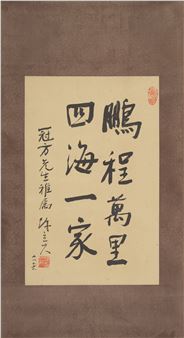 鵬程萬里
四海一家
冠方先生雅屬